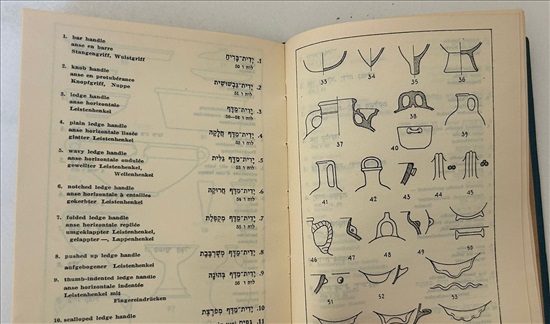 1. bar handle
anse en barre
Stangengriff, Wulstgriff
1. יָדִית־בָּרִיחַ
לוח ו 50
2. knob handle
anse en protubérance
Knopfgriff, Nuppe
2. יָדִית־גַּבְשׁוּשִׁית
לוח ו 51
3. ledge handle
anse horizontale
Leistenhenkel
3. יָדִית־מַדָּף
לוח ו
4. plain ledge handle
anse horizontale lissée
glatter Leistenhenkel
4. יָדִית־מַדָּף חֲלָקָה
לוח ו 52
5. wavy ledge handle
anse horizontale ondulée
gewellter Leistenhenkel,
Wellenhenkel
5. יָדִית־מַדָּף גַּלִּית
לוח ו 53
6. notched ledge handle
anse horizontale à entailles
gekerbter Leistenhenkel
6. יָדִית־מַדָּף חֲרוּקָה
לוח ו 54
7. folded ledge handle
anse horizontale repliée
umgeklappter Leistenhenkel,
gelappter —, Lappenhenkel
7. יָדִית־מַדָּף מְקֻפֶּלֶת
לוח ו
8. pushed up ledge handle
aufgebogener Leistenhenkel
8. יָדִית־מַדָּף מְשֻׁרְבֶּבֶת
לוח ו
9. thumb-indented ledge handle
anse horizontale indentée
Leistenhenkel mit
Fingereindrücken
9. יָדִית־מַדָּף בְּהוּנָה
לוח ו
10. scalloped ledge handle
10. יָדִית־מַדָּף מְפֹרֶצֶת
11.
33 34 35 36
37 38 39
40
41 42 43 44 45
46 47 48 49 50
51 52 53